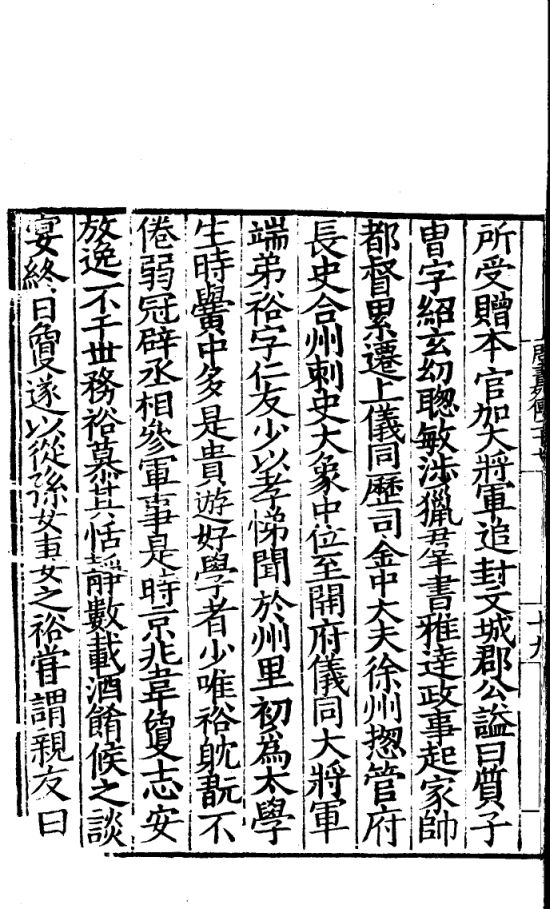 所受贈本官加大將軍追封文城郡公謚曰質子
胄字紹玄幼聦敏涉獵羣書雅達政事起家帥
都督累遷上儀同歷司金中大夫徐州揔管府
長史合州刺史大象中位至開府儀同大將軍
端弟裕字仁友少以孝悌聞於州里初為太學
生時黌中多是貴遊好學者少唯裕躭翫不
倦弱冠辟丞相參軍事是時京兆韋敻志安
放逸不干世務裕慕其恬靜數載酒餚候之談
宴終日敻遂以從孫女妻之裕甞謂親友曰